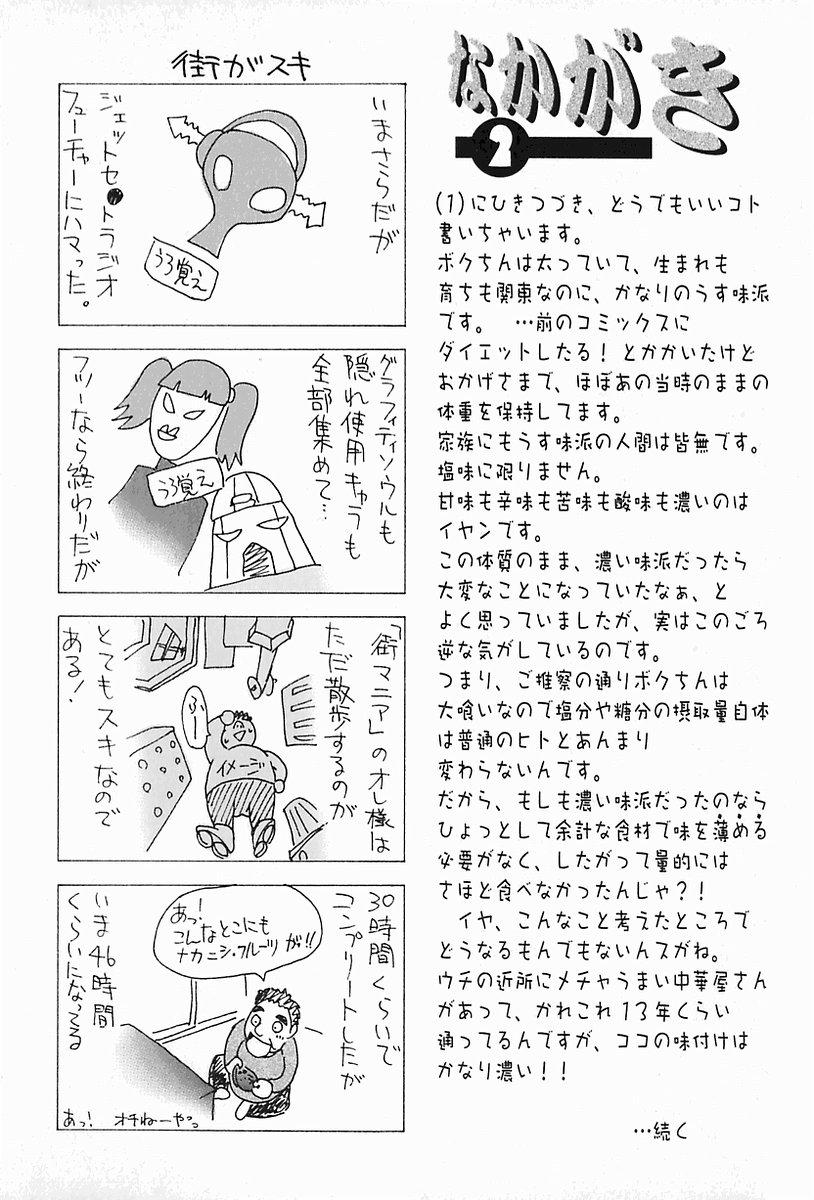 なかがき
2
(1)にひきつづき、どうでもいいコト
書いちゃいます。
ボクちんは太っていて、生まれも
育ちも関東なのに、かなりのうす味派
です。 …前のコミックスに
ダイエットしたる! とかかいたけど
おかげさまで、ほぼあの当時のままの
体重を保持してます。
家族にもうす味派の人間は皆無です。
塩味に限りません。
甘味も辛味も苦味も酸味も濃いのは
イヤンです。
この体質のまま、濃い味派だったら
大変なことになっていたなぁ、と
よく思っていましたが、実はこのごろ
逆な気がしているのです。
つまり、ご推察の通りボクちんは
大喰いなので塩分や糖分の摂取量自体
は普通のヒトとあんまり
変わらないんです。
だから、もしも濃い味派だったのなら
ひょっとして余計な食材で味を薄める
必要がなく、したがって量的には
さほど食べなかったんじゃ?!
イヤ、こんなこと考えたところで
どうなるもんでもないんスがね。
ウチの近所にメチャうまい中華屋さん
があって、かれこれ13年くらい
通ってるんですが、ココの味付けは
かなり濃い!!
…続く
街がスキ
いまさらだが
ジェットセ●トラジオ
フューチャーにハマった。
うろ覚え
グラフィティソウルも
隠れ使用キャラも
全部集めて…
フツーなら終わりだが
うろ覚え
「街マニア」のオレ様は
ただ散歩するのが
とてもスキなので
ある!
ふー
イメージ
30時間くらいで
コンプリートしたが
いま46時間
くらいになってる
あっ!
こんなとこにも
ナカニシ・フルーツが!!
あっ! オチねーやっ。